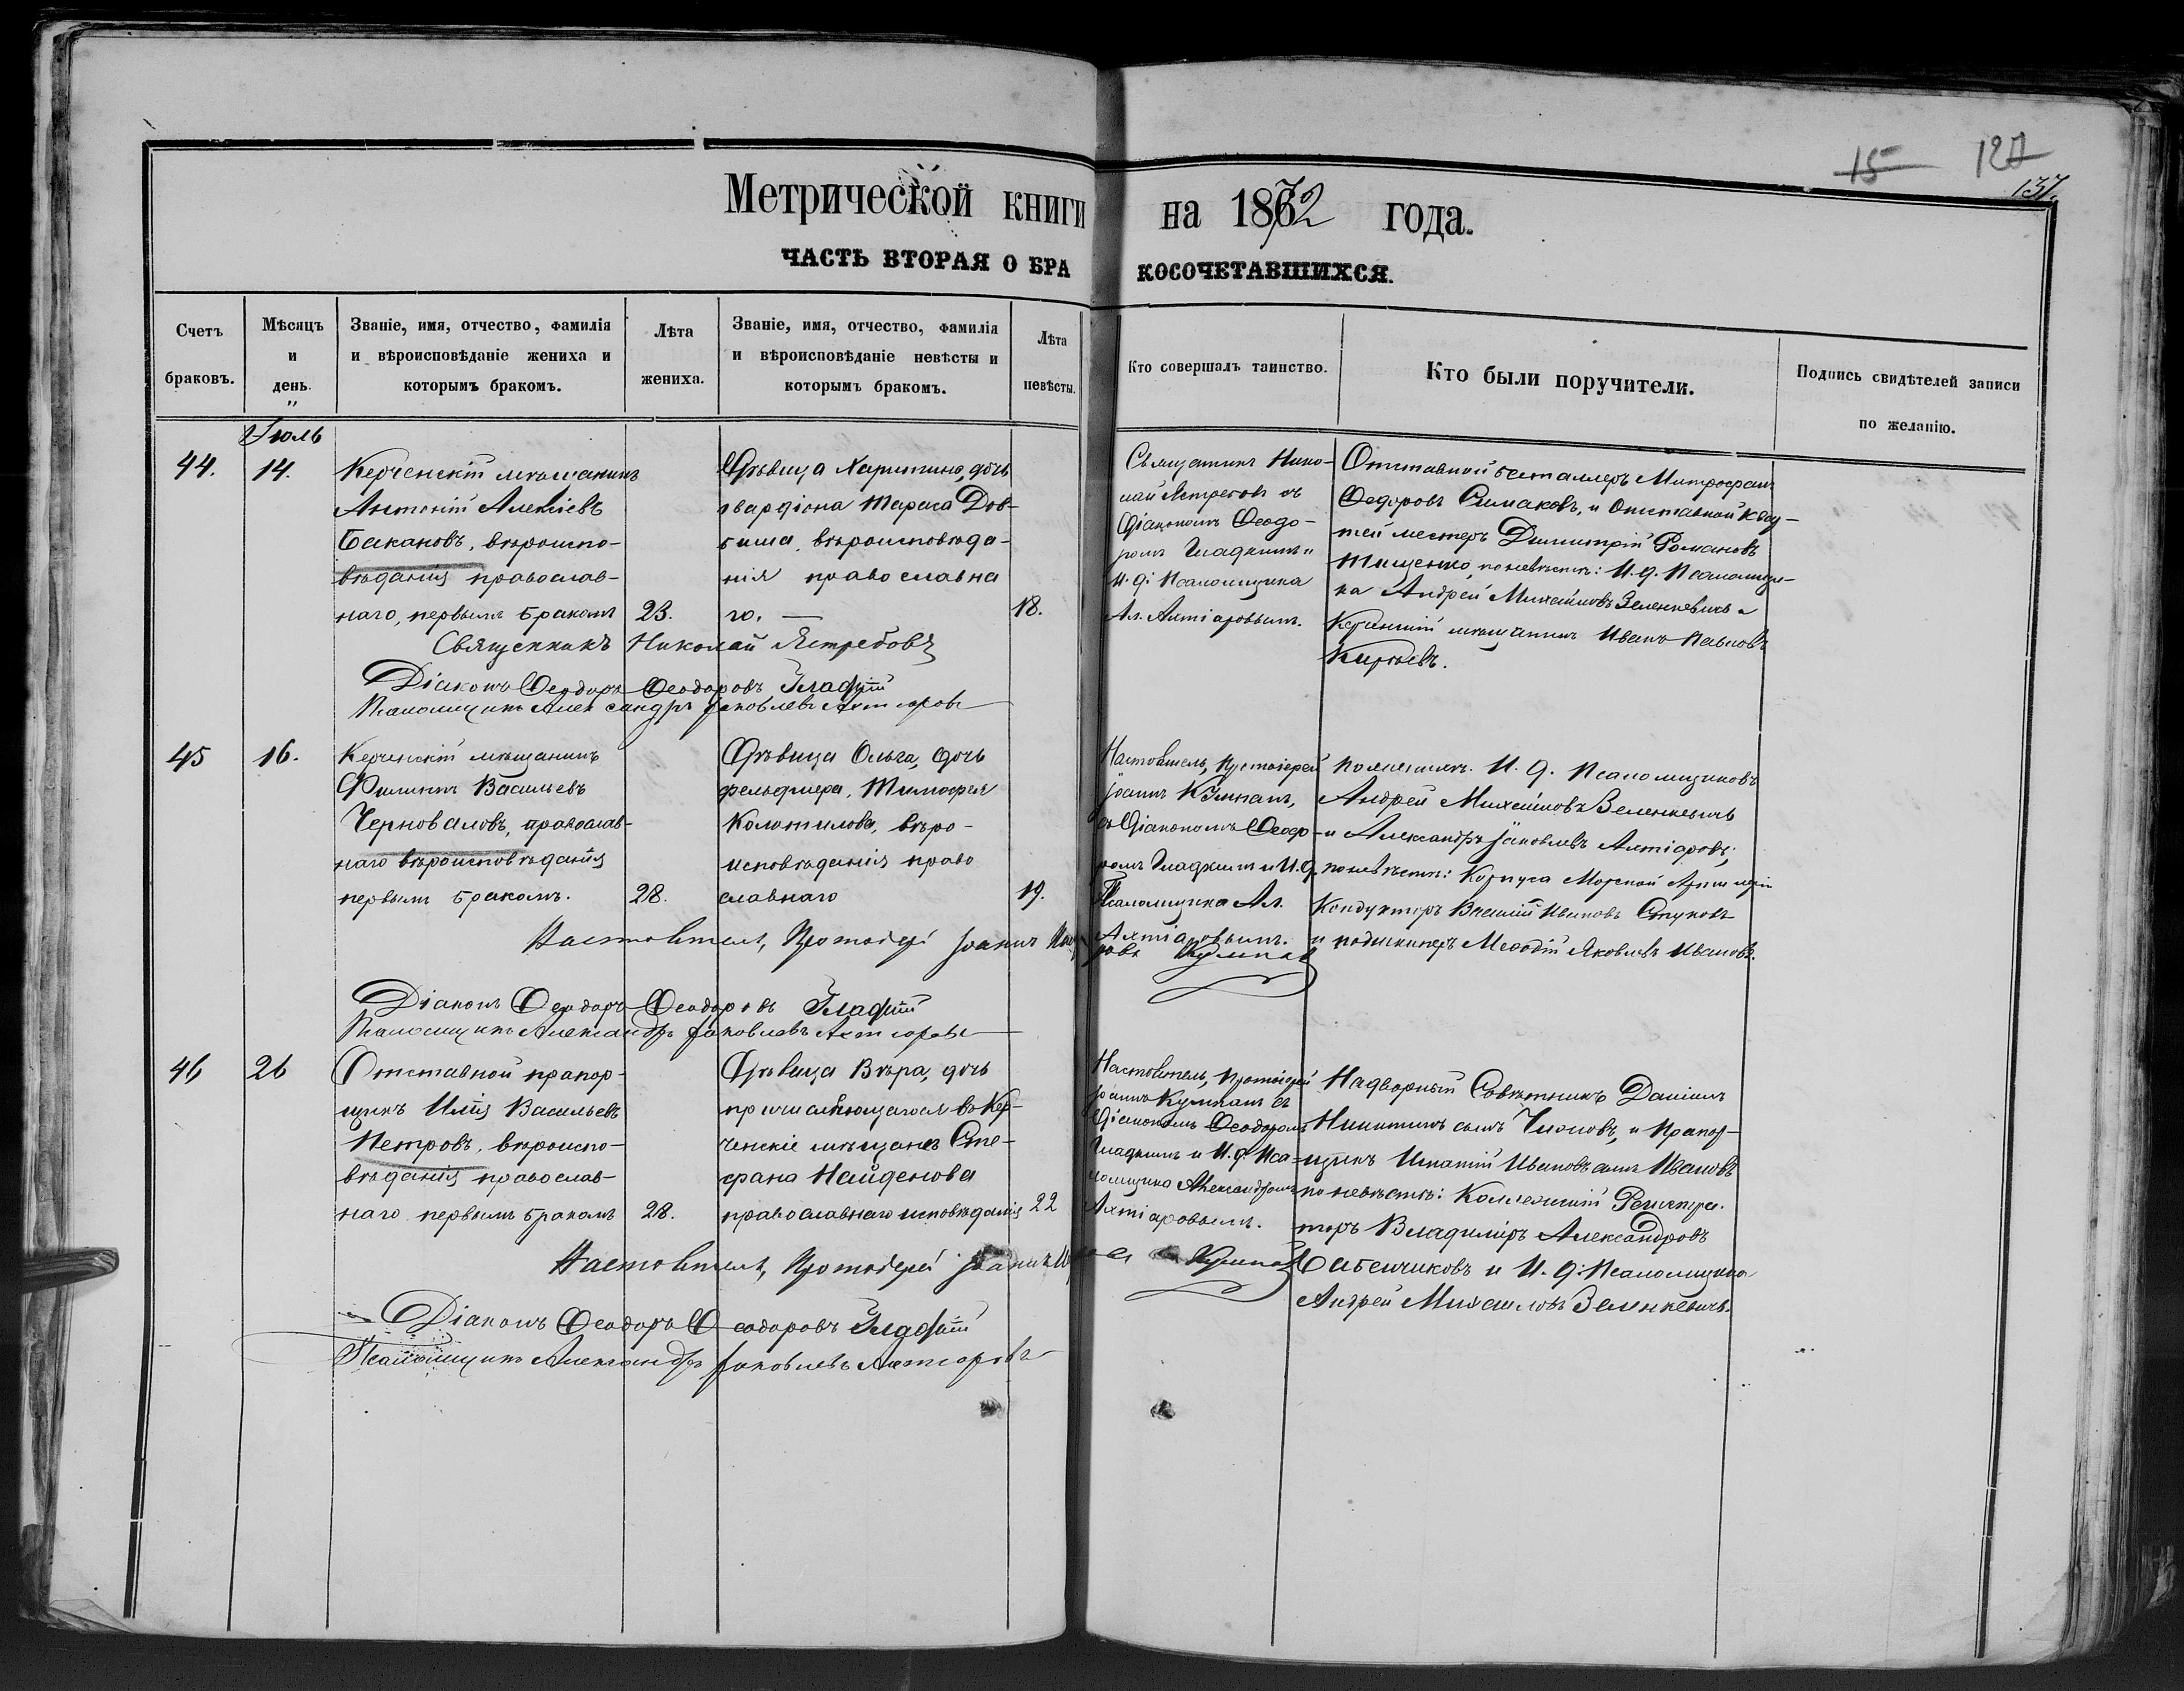 15 127
137.
Метрической книги на 1872 года.
ЧАСТЬ ВТОРАЯ О БРАКОСОЧЕТАВШИХСЯ.
Счетъ браковъ.
Мѣсяцъ и день.
Званіе, имя, отчество, фамилія и вѣроисповѣданіе жениха и которымъ бракомъ.
Лѣта жениха.
Званіе, имя, отчество, фамилія и вѣроисповѣданіе невѣсты и которымъ бракомъ.
Лѣта невѣсты.
Кто совершалъ таинство.
Кто были поручители.
Подпись свидѣтелей записи по желанію.
Іюль
44.
14.
Керченскій мѣщанинъ
Антоній Алексіевъ
Бакановъ, вѣроиспо-
вѣданія православ-
наго, первымъ бракомъ
23.
Дѣвица Харитина, дочь
гвардіона Тараса Дов-
биша, вѣроисповѣда-
нія православна
го. —
18.
Священникъ Нико-
лай Ястребовъ съ
Діакономъ Ѳеодо-
ромъ Гладкимъ и
и. д: Псаломщика
Ал. Ахтіаровымъ.
Отставной Митрофанъ
Ѳедоровъ Симаковъ, и Отставной
Димитрій Романовъ
Тищенко, по невѣстѣ: И. д. Псаломщи-
ка Андрей Михайловъ Зеленкевичъ и
Керченскій мѣщанинъ Иванъ Павловъ
Кирѣевъ.
Священникъ Николай Ястребовъ
Діаконъ Ѳеодоръ Ѳеодоровъ Гладкій
Псаломщикъ Александръ Іаковлевъ Ахтіаровъ
45
16.
Керченскій мѣщанинъ
Филиппъ Васильевъ
Черноваловъ, православ-
наго вѣроисповѣданія
первымъ бракомъ.
28.
Дѣвица Ольга, дочь
фельдшера, Тимофея
Колотилова, вѣро-
исповѣданія право
славнаго
19.
Настоятель, Протоіерей
Іоаннъ Кумпанъ,
съ Діакономъ Ѳеодо-
ромъ Гладкимъ и И. д.
Псаломщика Ал.
Ахтіаровымъ.
По женихѣ: И. д. Псаломщиковъ
Андрей Михайловъ Зеленкевичъ
и Александръ Іаковлевъ Ахтіаровъ;
по невѣстѣ: Корпуса Морской Артиллеріи
Кондукторъ Василій Ивановъ Стуковъ
и подшкиперъ Меѳодій Яковлевъ Ивановъ.
Настоятель, Протоіерей Іоаннъ Кумпанъ
Діаконъ Ѳеодоръ Ѳеодоровъ Гладкій
Псаломщикъ Александръ Іаковлевъ Ахтіаровъ
46
26
Отставной прапор-
щикъ Илія Васильевъ
Петровъ, вѣроиспо-
вѣданія православ-
наго первымъ бракомъ
28.
Дѣвица Вѣра, дочь
причисляющагося въ Кер-
ченскіе мѣщане Сте-
фана Найденова
православнаго исповѣданія
22
Настоятель, Протоіерей
Іоаннъ Кумпанъ съ
Діакономъ Ѳеодоромъ
Гладкимъ и И. д. Пса-
ломщика Александромъ
Ахтіаровымъ.
Надворный Совѣтникъ Даніилъ
Никитинъ сынъ Чиховъ, и Прапор-
щикъ Игнатій Ивановъ сынъ Ивановъ
по невѣстѣ: Коллежскій Регистра-
торъ Владиміръ Александровъ
Бабенчиковъ и И. д: Псаломщика
Андрей Михайловъ Зеленкевичъ.
Настоятель, Протоіерей Іоаннъ Кумпанъ
Діаконъ Ѳеодоръ Ѳеодоровъ Гладкій
Псаломщикъ Александръ Іаковлевъ Ахтіаровъ